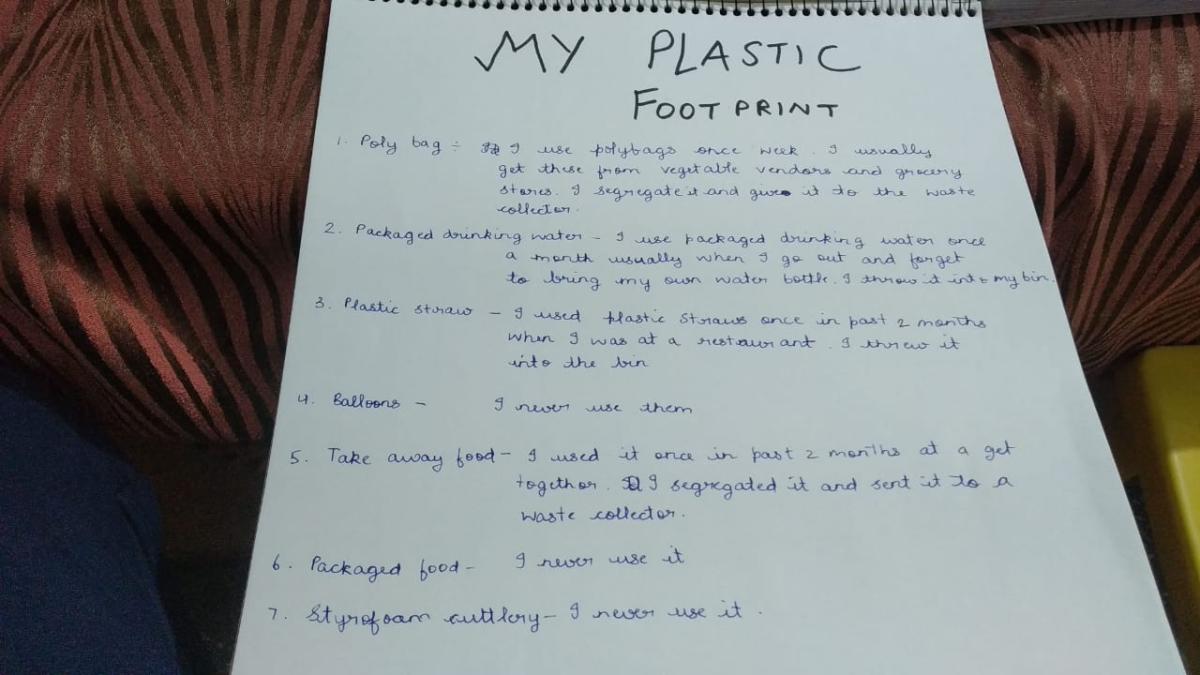 MY PLASTIC
FOOTPRINT
1. Poly bag ÷ I use polybags once week. I usually
get these from vegetable vendors and grocery
stores. I segregate it and give it to the waste
collector.
2. Packaged drinking water - I use packaged drinking water once
a month usually when I go out and forget
to bring my own water bottle. I throw it into my bin.
3. Plastic straw - I used plastic straws once in past 2 months
when I was at a restaurant. I threw it
into the bin
4. Balloons - I never use them
5. Take away food - I used it once in past 2 months at a get
together. I segregated it and sent it to a
waste collector.
6. Packaged food - I never use it
7. Styrofoam cuttlery - I never use it.